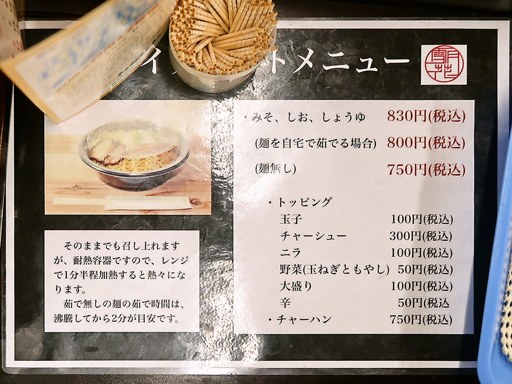 メニュー
・みそ、しお、しょうゆ 830円(税込)
(麺を自宅で茹でる場合) 800円(税込)
(麺無し) 750円(税込)
・トッピング
玉子 100円(税込)
チャーシュー 300円(税込)
ニラ 100円(税込)
野菜(玉ねぎともやし) 50円(税込)
大盛り 100円(税込)
辛 50円(税込)
・チャーハン 750円(税込)
そのままでも召し上れます
が、耐熱容器ですので、レンジ
で1分半程加熱すると熱々にな
ります。
茹で無しの麺の茹で時間は、
沸騰してから2分が目安です。